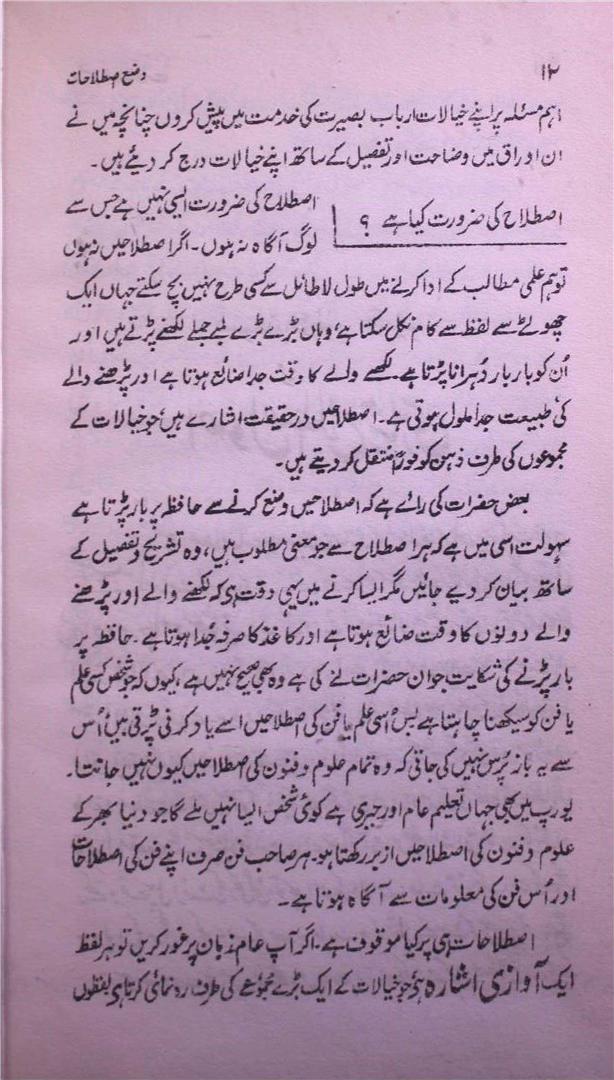 ۱۲
وضع اصطلاحات
اہم مسئلہ پر اپنے خیالات ارباب بصیرت کی خدمت میں پیش کروں چنانچہ میں نے
ان اوراق میں وضاحت اور تفصیل کے ساتھ اپنے خیالات درج کر دیئے ہیں۔
اصطلاح کی ضرورت کیا ہے ؟
اصطلاح کی ضرورت ایسی نہیں ہے جس سے
لوگ آگاہ نہ ہوں۔ اگر اصطلاحیں نہ ہوں
تو ہم علمی مطالب کے ادا کرنے میں طول لاطائل سے کسی طرح نہیں بچ سکتے جہاں ایک
چھوٹے سے لفظ سے کام نکل سکتا ہے، وہاں بڑے بڑے لمبے جملے لکھنے پڑتے ہیں اور
اُن کو بار بار دُہرانا پڑتا ہے۔ لکھنے والے کا وقت جدا ضائع ہوتا ہے اور پڑھنے والے
کی طبیعت جدا ملول ہوتی ہے۔ اصطلاحیں درحقیقت اشارے ہیں، جو خیالات کے
مجموعوں کی طرف ذہن کو فوراً منتقل کر دیتے ہیں۔
بعض حضرات کی رائے ہے کہ اصطلاحیں وضع کرنے سے حافظہ پر بار پڑتا ہے
سہولت اسی میں ہے کہ ہر اصطلاح سے جو معنی مطلوب ہیں، وہ تشریح و تفصیل کے
ساتھ بیان کر دیے جائیں مگر ایسا کرنے میں یہی دقت ہے کہ لکھنے والے اور پڑھنے
والے دونوں کا وقت ضائع ہوتا ہے اور کاغذ کا صرفہ جُدا ہوتا ہے۔ حافظہ پر
بار پڑنے کی شکایت جو ان حضرات نے کی ہے وہ بھی صحیح نہیں ہے، کیوں کہ جو شخص کسی علم
یا فن کو سیکھنا چاہتا ہے بس اُسی علم یا فن کی اصطلاحیں اسے یاد کرنی پڑتی ہیں، اُس
سے یہ باز پُرس نہیں کی جاتی کہ وہ تمام علوم و فنون کی اصطلاحیں کیوں نہیں جانتا۔
یورپ میں بھی جہاں تعلیم عام اور جبری ہے کوئی شخص ایسا نہیں ملے گا جو دنیا بھر کے
علوم و فنون کی اصطلاحیں ازبر رکھتا ہو۔ ہر صاحب فن صرف اپنے فن کی اصطلاحات
اور اُس فن کی معلومات سے آگاہ ہوتا ہے۔
اصطلاحات ہی پر کیا موقوف ہے۔ اگر آپ عام زبان پر غور کریں تو ہر لفظ
ایک آوازی اشارہ ہے، جو خیالات کے ایک بڑے مجموعے کی طرف رہ نمائی کرتا ہے، لفظوں